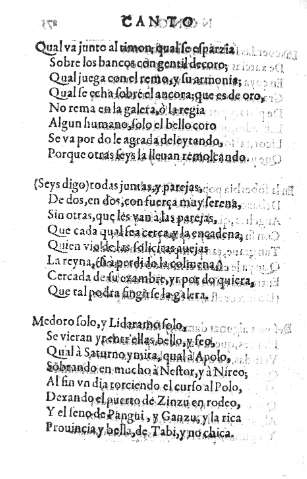 CANTO
Qual va junto al timon, qual se esparzia
Sobre los bancos con gentil decoro;
Qual juega con el remo, y su armonia;
Qual se echa sobre el ancora, que es de oro,
No rema en la galera, ò la regia
Algun humano, solo el bello coro
Se va por do le agrada deleytando,
Porque otras seys la lleuan remolcando.
(Seys digo) todas juntas, y parejas,
De dos, en dos, con fuerça muy serena,
Sin otras, que les van à las parejas,
Que cada qual sea cerca, y la encadena,
Quien vio de las solicitas auejas
La reyna, si a por do la colmena
Cercada de su exambre, yr por do quiera,
Que tal podra fingirse la galera.
Medoro solo, y Lidaramo solo,
Se vieran yr entre ellas, bello, y feo,
Qual à Saturno ymita, qual à Apolo,
Sobrando en mucho à Nestor, y à Nireo;
Al fin vn dia torciendo el curso al Polo,
Dexando el puerto de Zinzu en rodeo,
Y el seno de Pangui, y Ganzu, y la rica
Prouincia y bella, de Tabi, y no chica.